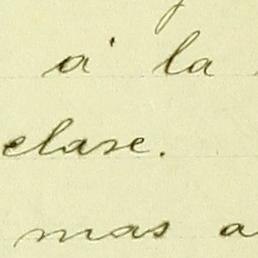 á la
clase.
mas a